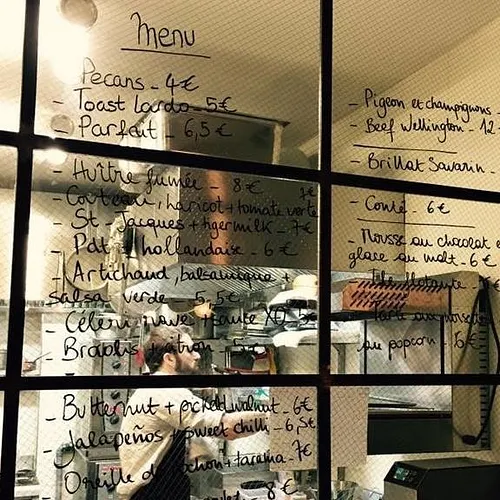 Menu
- Pecans - 4€
- Toast Lardo - 5€
- Parfait - 6,5€
- Huître fumée - 8€
- Couteau, haricot + tomate verte 7€
- St Jacques + tigermilk - 7€
- Pdt + hollandaise - 6€
- Artichaud, balsamique +
salsa verde - 5,5€
- Céleri rave + sauce XO 5€
- Brocolis + citron - 5€
- Butternut + pickled walnut - 6€
- Jalapeños + sweet chili - 6,5€
- Oreille de cochon + tarama - 7€
- 8€
- Pigeon et champignons -
- Beef Wellington - 12
- Brillat Savarin -
- Comté - 6€
- Mousse au chocolat et
glace au malt - 6€
- Île flottante -
- Tarte aux noisettes
au popcorn - 6€